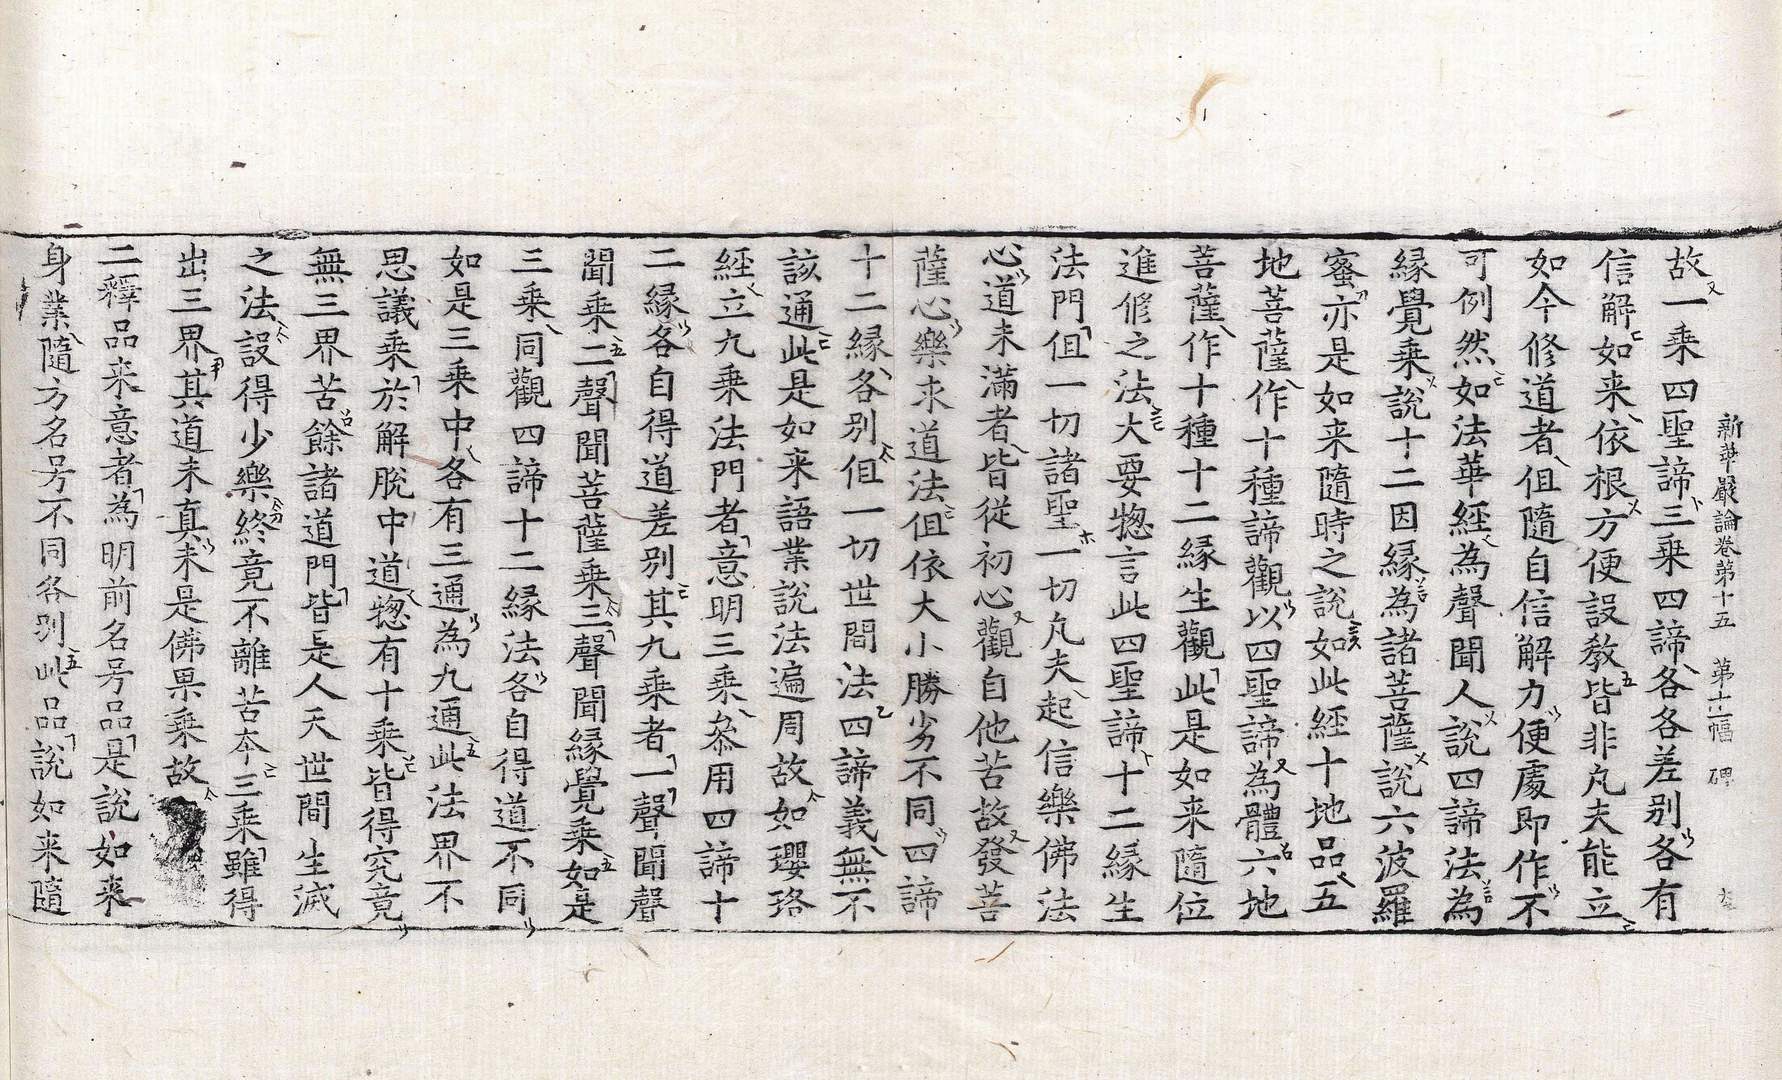 新華嚴論卷第十五 第十二幅 碑
故一乘四聖諦三乘四諦各各差别各有
信解如来依根方便設教皆非凡夫能立
如今修道者但隨自信解力便處即作不
可例然如法華經為聲聞人說四諦法為
緣覺乘說十二因緣為諸菩薩說六波羅
蜜亦是如来隨時之說如此經十地品五
地菩薩作十種諦觀以四聖諦為體六地
菩薩作十種十二緣生觀此是如来隨位
進修之法大要惣言此四聖諦十二緣生
法門但一切諸聖一切凡夫起信樂佛法
心道未滿者皆從初心觀自他苦故發菩
薩心樂求道法但依大小勝劣不同四諦
十二緣各别但一切世間法四諦義無不
該通此是如来語業說法遍周故如瓔珞
經立九乘法門者意明三乘叅用四諦十
二緣各自得道差别其九乘者一聲聞聲
聞乘二聲聞菩薩乘三聲聞緣覺乘如是
三乘同觀四諦十二緣法各自得道不同
如是三乘中各有三通為九通此法界不
思議乘於解脫中道惣有十乘皆得究竟
無三界苦餘諸道門皆是人天世間生滅
之法設得少樂終竟不離苦夲三乘雖得
出三界其道未真未是佛果乘故
二釋品来意者為明前名号品是說如来
身業隨方名号不同各别此品說如来隨